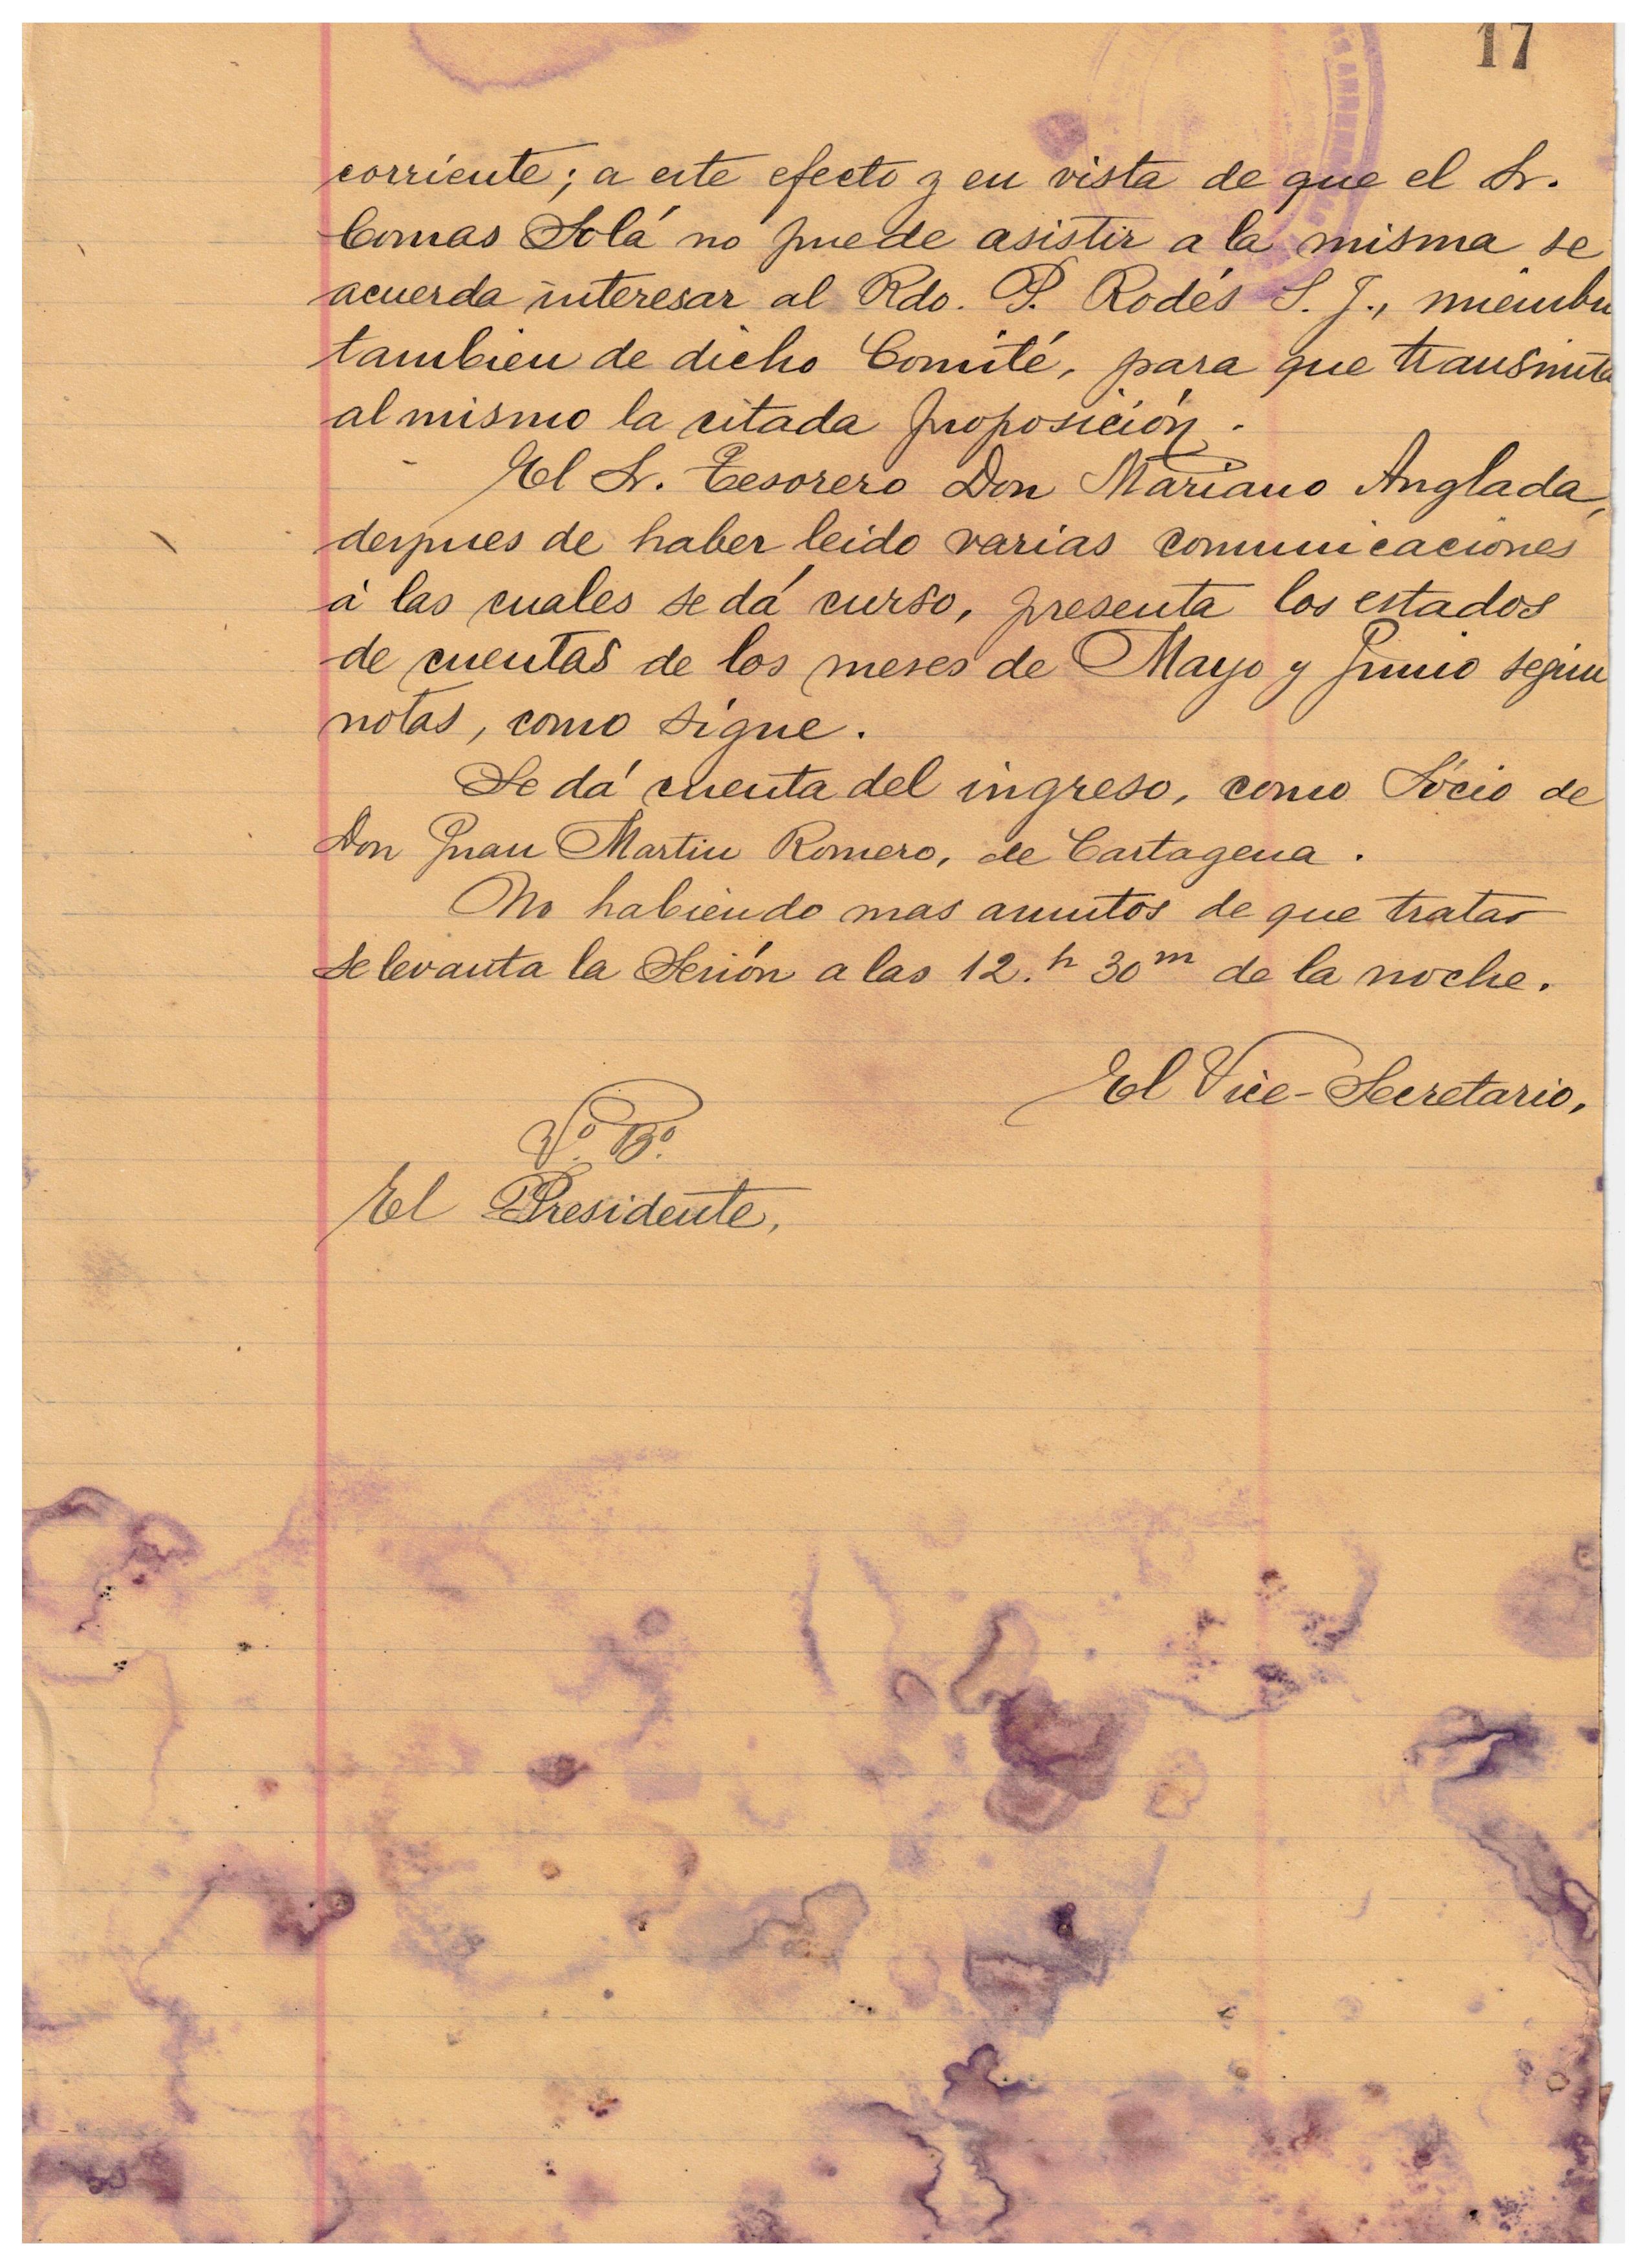 17
corriente; a este efecto y en vista de que el Sr.
Comas Solá no puede asistir a la misma se
acuerda interesar al Rdo. P. Rodés S. J., miembro
tambien de dicho Comité, para que transmita
al mismo la citada proposición.
El Sr. Tesorero Don Mariano Anglada,
despues de haber leido varias comunicaciones
á las cuales se dá curso, presenta los estados
de cuentas de los meses de Mayo y Junio segun
notas, como sigue.
Se dá cuenta del ingreso, como Sócio de
Don Juan Martin Romero, de Cartagena.
No habiendo mas asuntos de que tratar
se levanta la Sesión a las 12.h 30m de la noche.
El Vice-Secretario,
Vº. Bº.
El Presidente,